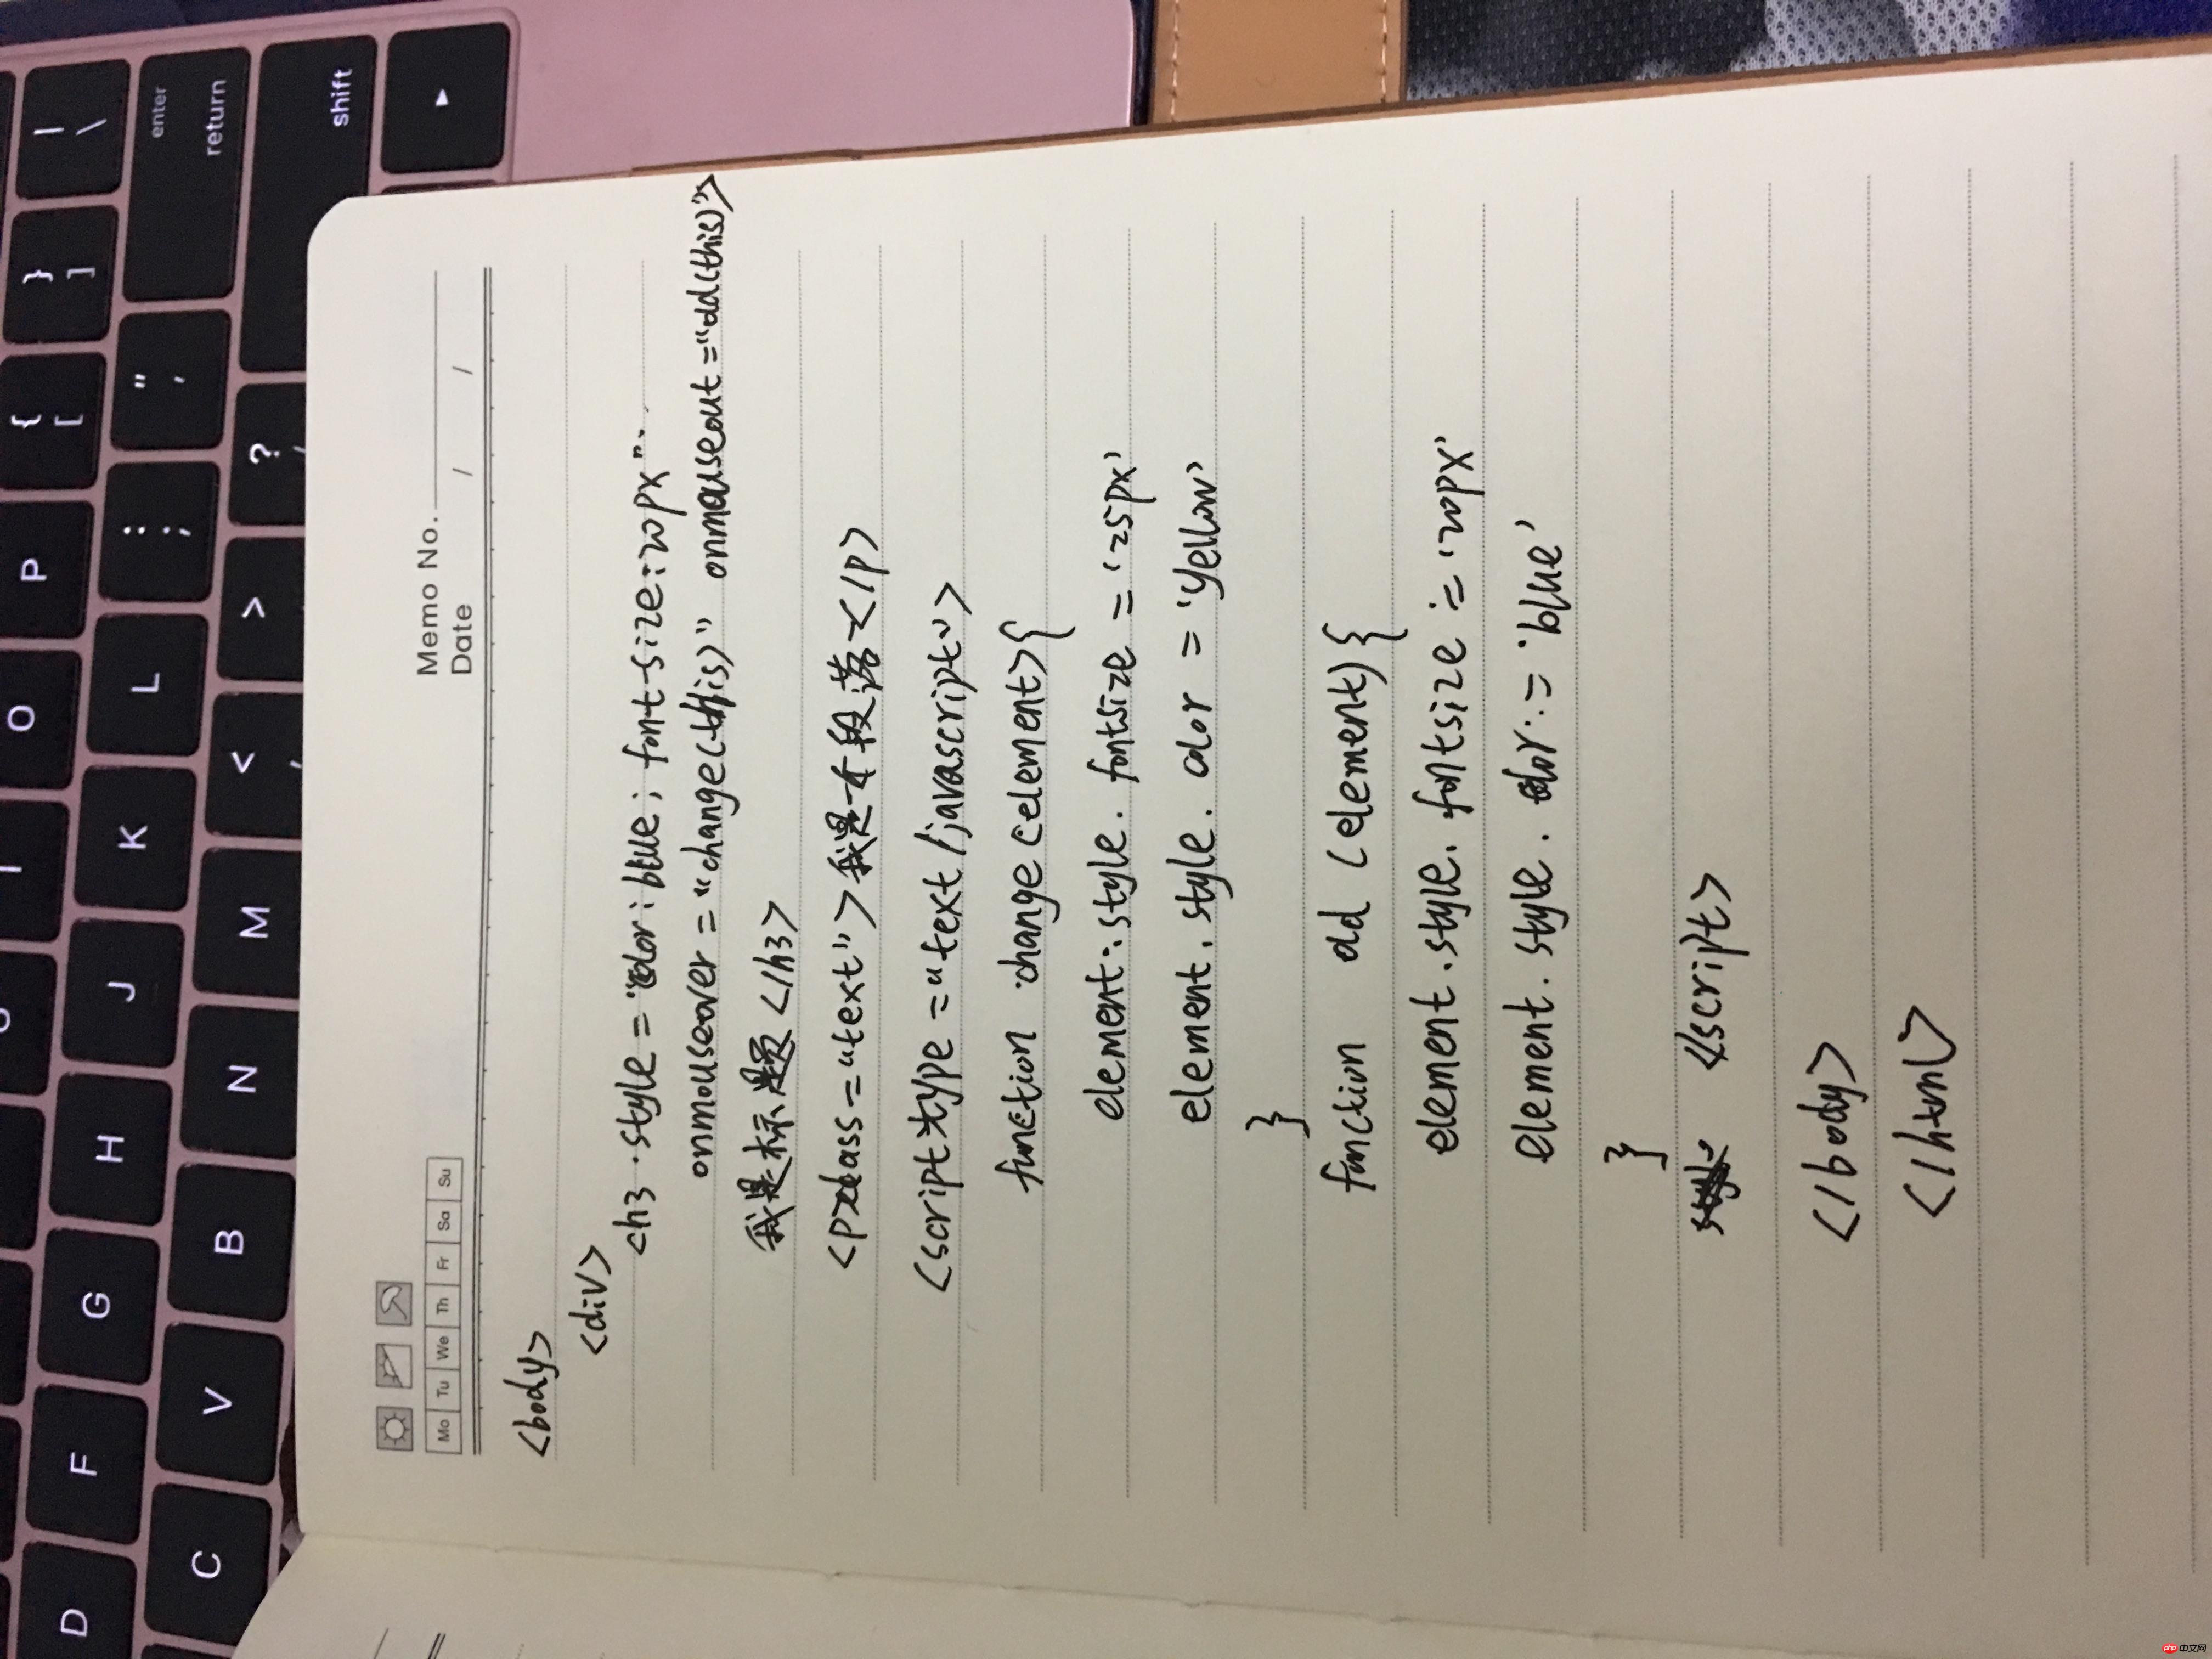 Memo No.
Date / /
Mo Tu We Th Fr Sa Su
<body>
<div>
<h3 style="color:blue; font-size:20px"
onmouseover="change(this)" onmouseout="dd(this)">
我是标题</h3>
<p class="text">我是一个段落</p>
<script type="text/javascript">
function change(element){
element.style.fontsize='25px'
element.style.color='yellow'
}
function dd(element){
element.style.fontsize='20px'
element.style.color='blue'
}
</script>
</body>
</html>
| \
enter return
shift
} ]
{ [
" '
? /
P
: ;
>
O
L
<
,
K
M
J
N
H
B
G
V
F
C
D
php 中文网